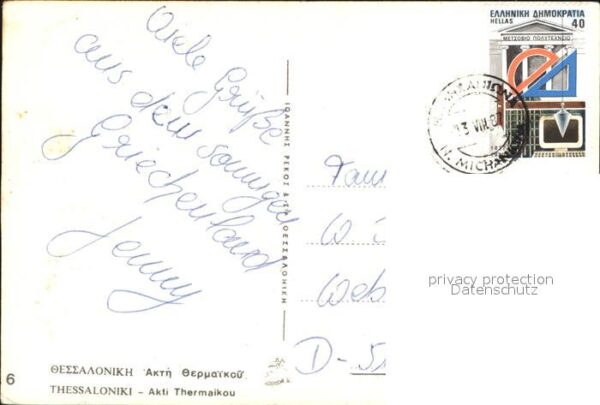 Viele Grüße
aus dem sonnigen
Griechenland
Jenny
ΙΩΑΝΝΗΣ ΡΕΚΟΣ & ΣΙΑ ΘΕΣΣΑΛΟΝΙΚΗ
ΕΛΛΗΝΙΚΗ ΔΗΜΟΚΡΑΤΙΑ
HELLAS 40
ΜΕΤΣΟΒΙΟ ΠΟΛΥΤΕΧΝΕΙΟ
13 VIII 87
N. MICHANIONA
Fam
W
Web
D-51
privacy protection
Datenschutz
ΘΕΣΣΑΛΟΝΙΚΗ Ἀκτή Θερμαϊκοῦ
THESSALONIKI – Akti Thermaikou
6